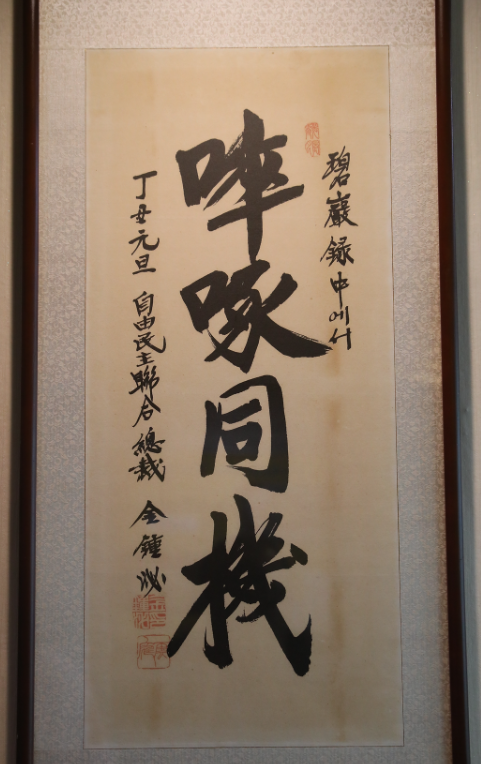 碧巖録中에서
啐啄同機
丁丑元旦 自由民主聯合 總裁 金鍾泌